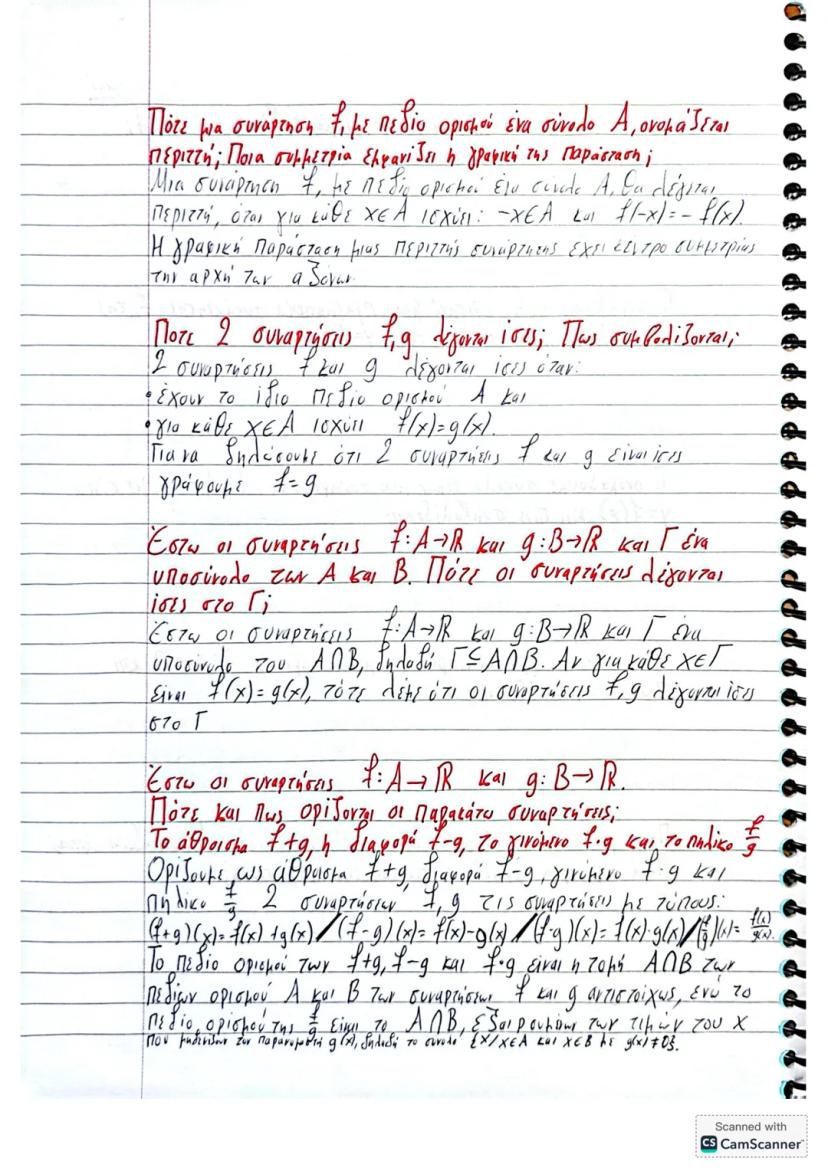 Πότε μια συνάρτηση f, με πεδίο ορισμού ένα σύνολο A, ονομάζεται
περιττή; Ποια συμμετρία εμφανίζει η γραφική της παράσταση;
Μια συνάρτηση f, με πεδίο ορισμού ένα σύνολο A, θα λέγεται
περιττή, όταν για κάθε x∈A ισχύει: -x∈A και f(-x)=-f(x).
Η γραφική παράσταση μιας περιττής συνάρτησης έχει κέντρο συμμετρίας
την αρχή των αξόνων.
Ποτε 2 συναρτήσεις f,g λέγονται ίσες; Πως συμβολίζονται;
2 συναρτήσεις f και g λέγονται ίσες όταν:
• έχουν το ίδιο πεδίο ορισμού A και
• για κάθε x∈A ισχύει f(x)=g(x).
Για να δηλώσουμε ότι 2 συναρτήσεις f και g είναι ίσες
γράφουμε f=g
Έστω οι συναρτήσεις f:A→ℝ και g:B→ℝ και Γ ένα
υποσύνολο των A και B. Πότε οι συναρτήσεις λέγονται
ίσες στο Γ;
Έστω οι συναρτήσεις f:A→ℝ και g:B→ℝ και Γ ένα
υποσύνολο του A∩B, δηλαδή Γ⊆A∩B. Αν για κάθε x∈Γ
είναι f(x)=g(x), τότε λέμε ότι οι συναρτήσεις f,g λέγονται ίσες
στο Γ
Έστω οι συναρτήσεις f:A→ℝ και g:B→ℝ.
Πότε και πως ορίζονται οι παρακάτω συναρτήσεις;
Το άθροισμα f+g, η διαφορά f-g, το γινόμενο f·g και το πηλίκο f/g
Ορίζουμε ως άθροισμα f+g, διαφορά f-g, γινόμενο f·g και
πηλίκο f/g 2 συναρτήσεων f,g τις συναρτήσεις με τύπους:
(f+g)(x)=f(x)+g(x) / (f-g)(x)=f(x)-g(x) / (f·g)(x)=f(x)·g(x) / (f/g)(x)=f(x)/g(x).
Το πεδίο ορισμού των f+g, f-g και f·g είναι η τομή A∩B των
πεδίων ορισμού A και B των συναρτήσεων f και g αντιστοίχως, ενώ το
πεδίο ορισμού της f/g είναι το A∩B, εξαιρουμένων των τιμών του x
που μηδενίζουν τον παρανομαστή g(x), δηλαδή το σύνολο {x/x∈A και x∈B με g(x)≠0}.
Scanned with
CS CamScanner